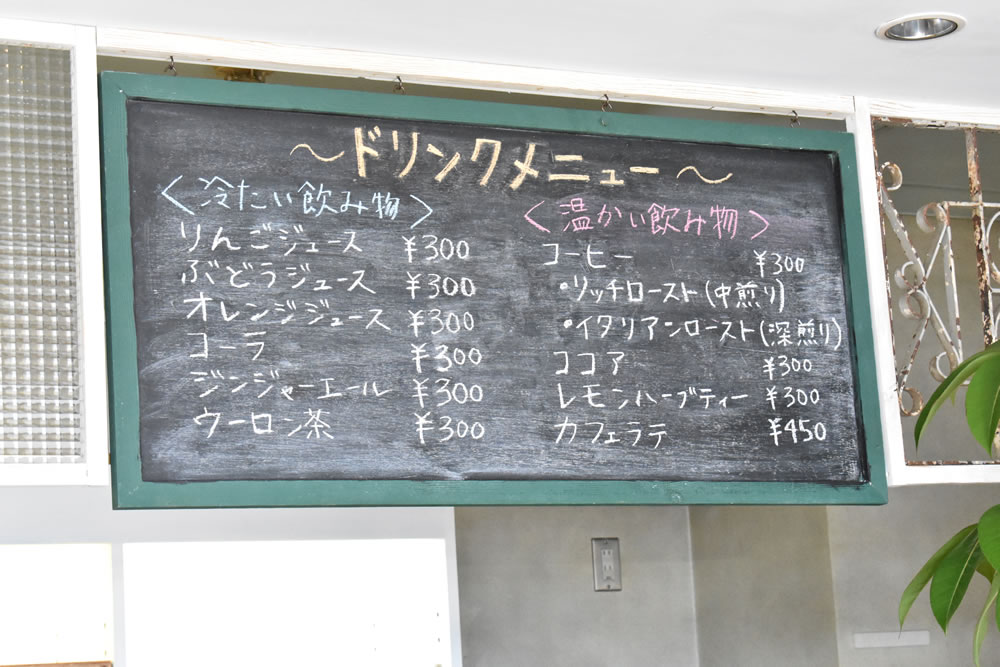 ～ドリンクメニュー～
＜冷たい飲み物＞
りんごジュース ¥300
ぶどうジュース ¥300
オレンジジュース ¥300
コーラ ¥300
ジンジャーエール ¥300
ウーロン茶 ¥300
＜温かい飲み物＞
コーヒー ¥300
•リッチロースト(中煎り)
•イタリアンロースト(深煎り)
ココア ¥300
レモンハーブティー ¥300
カフェラテ ¥450